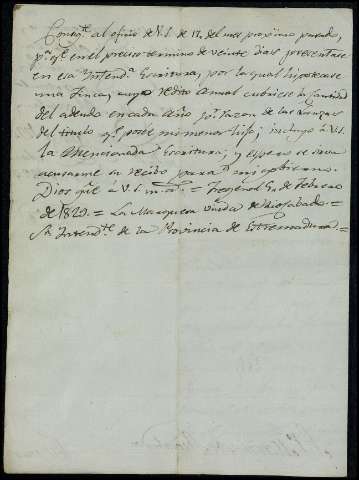 Consig.te al oficio de V.S. de 17. del mes proximo pasado,
p.a q.e en el preciso termino de veinte dias presentase
en esa Intend.a Escritura, por la qual hipotecase
una Finca, cuyo redito anual cubriese la cantidad
del adeudo en cada año p.r razon de las Lanzas
del titulo q.e posee mi menor hijo; incluyo á V.S.
la mencionada Escritura; y espero se sirva
acusarme su recibo para mi gobierno.
Dios gũe á V.S. m.s a.s = Fregenal de Febrero
de 1829. = La Marquesa viuda de Riocabado. =
S.r Intend.te de la Provincia de Estremadura. =